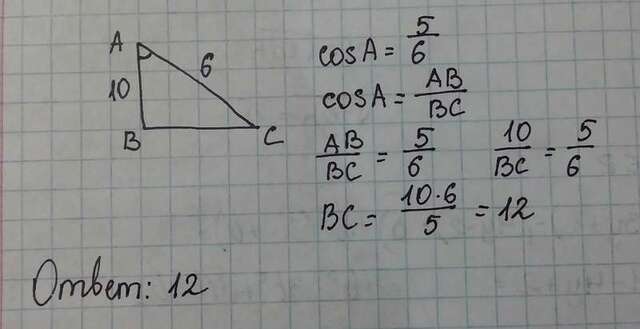 A
6
10
B
C
cosA = 5/6
cosA = AB/BC
AB/BC = 5/6 10/BC = 5/6
BC = 10·6/5 = 12
Ответ: 12